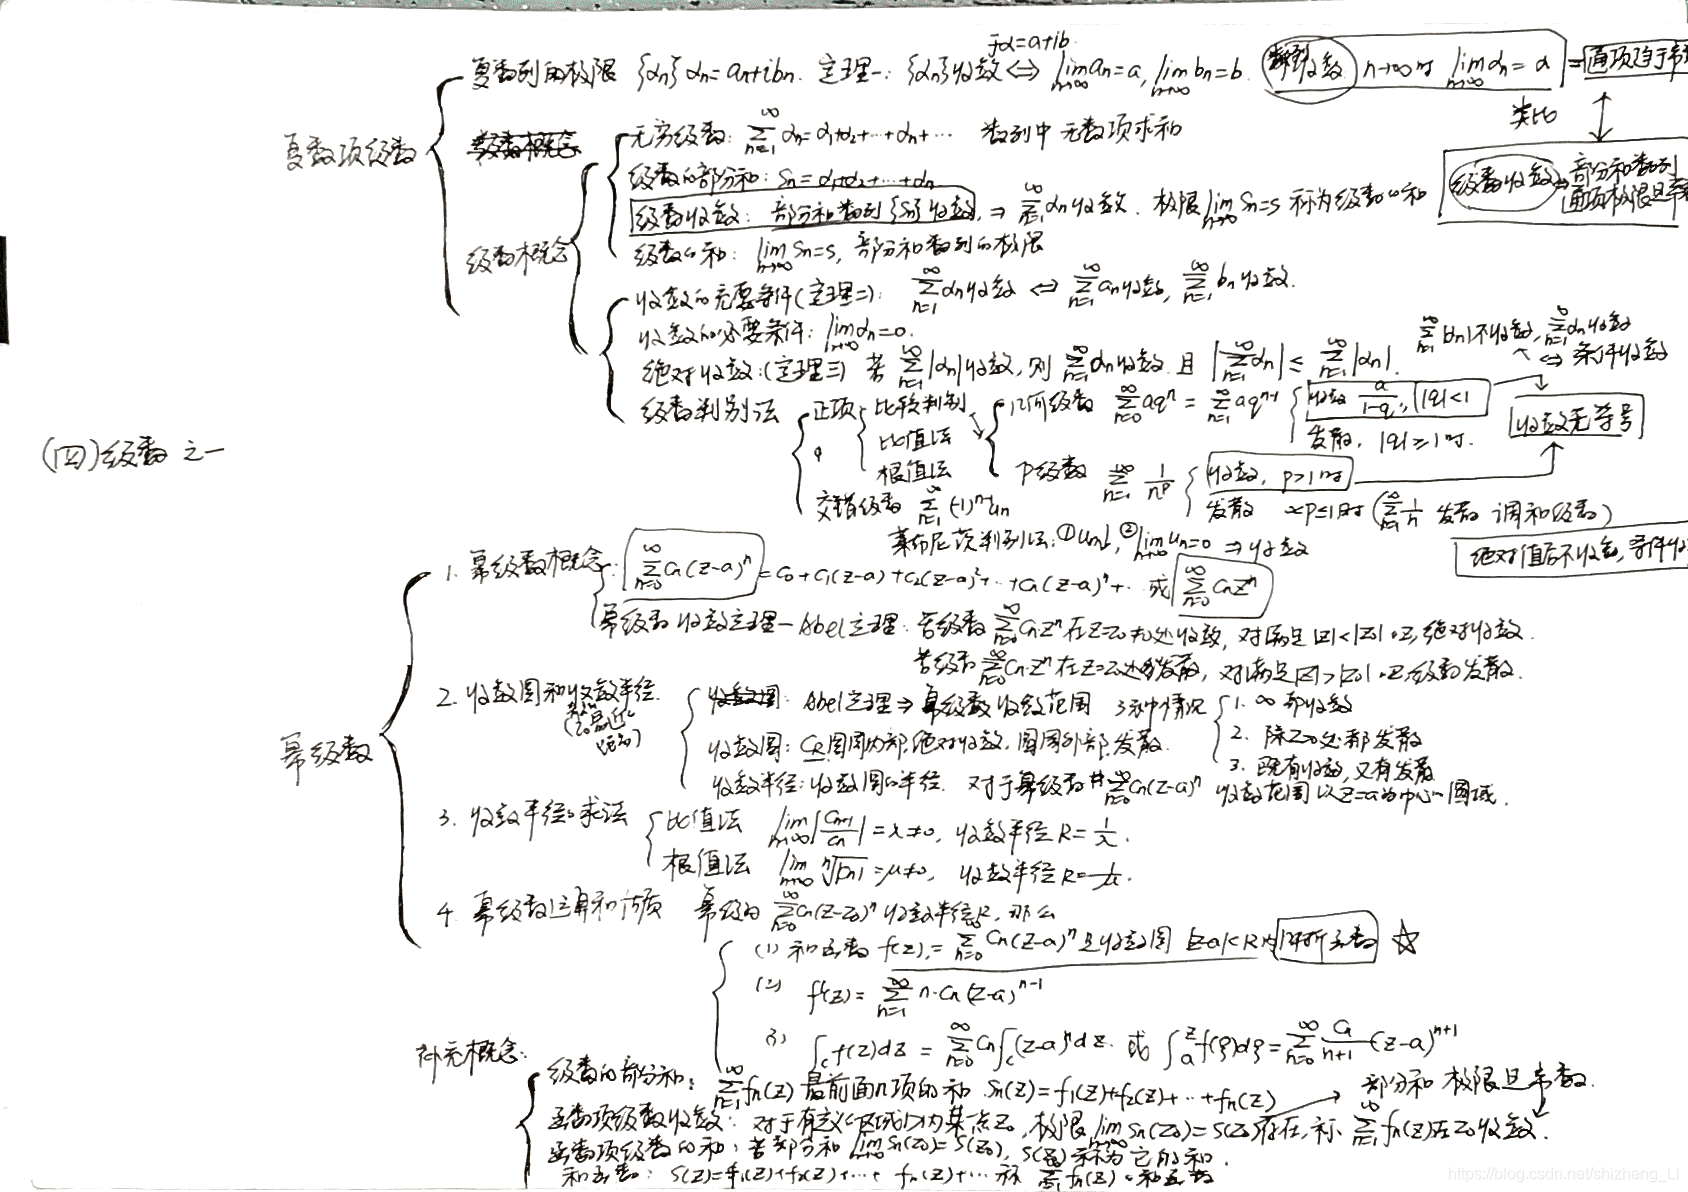 (四)级数之一
复数项级数
复数列的极限 {αn} αn=an+ibn. 定理一: {αn}收敛 ⇔ lim n→∞ an=a, lim n→∞ bn=b.
于α=a+ib.
数列收敛 n→∞时 lim n→∞ αn=α = 通项趋于常
类比
级数收敛 ⇒ 部分和数列
通项极限是常
级数概念
无穷级数: ∑ n=1 ∞ αn=α1+α2+…+αn+… 数列中无数项求和
级数的部分和: Sn=α1+α2+…+αn
级数收敛: 部分和数列{Sn}收敛, ⇒ ∑ n=1 ∞ αn收敛. 极限 lim n→∞ Sn=S 称为级数的和
级数的和: lim n→∞ Sn=S, 部分和数列的极限
收敛的充要条件(定理二): ∑ n=1 ∞ αn收敛 ⇔ ∑ n=1 ∞ an收敛, ∑ n=1 ∞ bn收敛.
收敛的必要条件: lim n→∞ αn=0.
绝对收敛:(定理三) 若 ∑ n=1 ∞ |αn|收敛, 则 ∑ n=1 ∞ αn收敛 且 |∑ n=1 ∞ αn| ≤ ∑ n=1 ∞ |αn|.
不收敛, ∑ n=1 ∞ αn收敛
⇔ 条件收敛
级数判别法
正项
比较判别
比值法
根值法
几何级数 ∑ n=0 ∞ aq^n = ∑ n=1 ∞ aq^(n-1)
收敛 a/(1-q), |q|<1
发散, |q|≥1时.
收敛无等号
P级数 ∑ n=1 ∞ 1/n^p
收敛, p>1时
发散 p≤1时 (∑ n=1 ∞ 1/n 发散 调和级数)
交错级数 ∑ n=1 ∞ (-1)^(n-1) un
莱布尼茨判别法: ①un↓, ② lim n→∞ un=0 ⇒ 收敛
绝对值后不收敛, 条件收
幂级数
1. 幂级数概念: ∑ n=0 ∞ Cn(z-a)^n = C0+C1(z-a)+C2(z-a)^2+…+Cn(z-a)^n+… 或 ∑ n=0 ∞ Cnz^n
幂级数收敛定理—Abel定理: 若级数 ∑ n=0 ∞ Cnz^n 在z=z0≠0处收敛, 对满足|z|<|z0|的z, 绝对收敛.
若级数 ∑ n=0 ∞ Cnz^n 在z=z0处发散, 对满足|z|>|z0|的z级数发散.
2. 收敛圆和收敛半径.
收敛圆: Abel定理⇒幂级数收敛范围 3种情况
1. ∞ 都收敛
2. 除z=0处都发散
3. 既有收敛, 又有发散
收敛圆: CR圆周内部, 绝对收敛, 圆周外部, 发散.
收敛半径: 收敛圆的半径. 对于幂级数 ∑ n=0 ∞ Cn(z-a)^n 收敛范围以z=a为中心的圆域.
3. 收敛半径的求法
比值法 lim n→∞ |Cn+1/Cn|=λ≠0, 收敛半径R=1/λ.
根值法 lim n→∞ n√|Cn|=μ≠0, 收敛半径R=1/μ.
4. 幂级数运算和性质 幂级数 ∑ n=0 ∞ Cn(z-z0)^n 收敛半径R, 那么
(1) 和函数 f(z) = ∑ n=0 ∞ Cn(z-a)^n 是收敛圆 |z-a|<R内 解析函数 ☆
(2) f'(z)= ∑ n=1 ∞ n·Cn(z-a)^(n-1)
(3) ∫c f(z)dz = ∑ n=0 ∞ Cn∫c (z-a)^n dz 或 ∫ a z f(ρ)dρ = ∑ n=0 ∞ Cn/(n+1) (z-a)^(n+1)
补充概念:
级数的部分和: ∑ n=1 ∞ fn(z) 最前面n项的和 Sn(z)=f1(z)+f2(z)+…+fn(z)
部分和极限是常数.
函数项级数收敛: 对于有定义的区域D内某点z0, 极限 lim n→∞ Sn(z0)=S(z0)存在, 称 ∑ n=1 ∞ fn(z)在z0收敛.
函数项级数的和: 若部分和 lim n→∞ Sn(z0)=S(z0), S(z0)称为它的和.
和函数: S(z)=f1(z)+f2(z)+…+fn(z)+… 称 ∑ n=1 fn(z)的和函数
https://blog.csdn.net/shizheng_Li